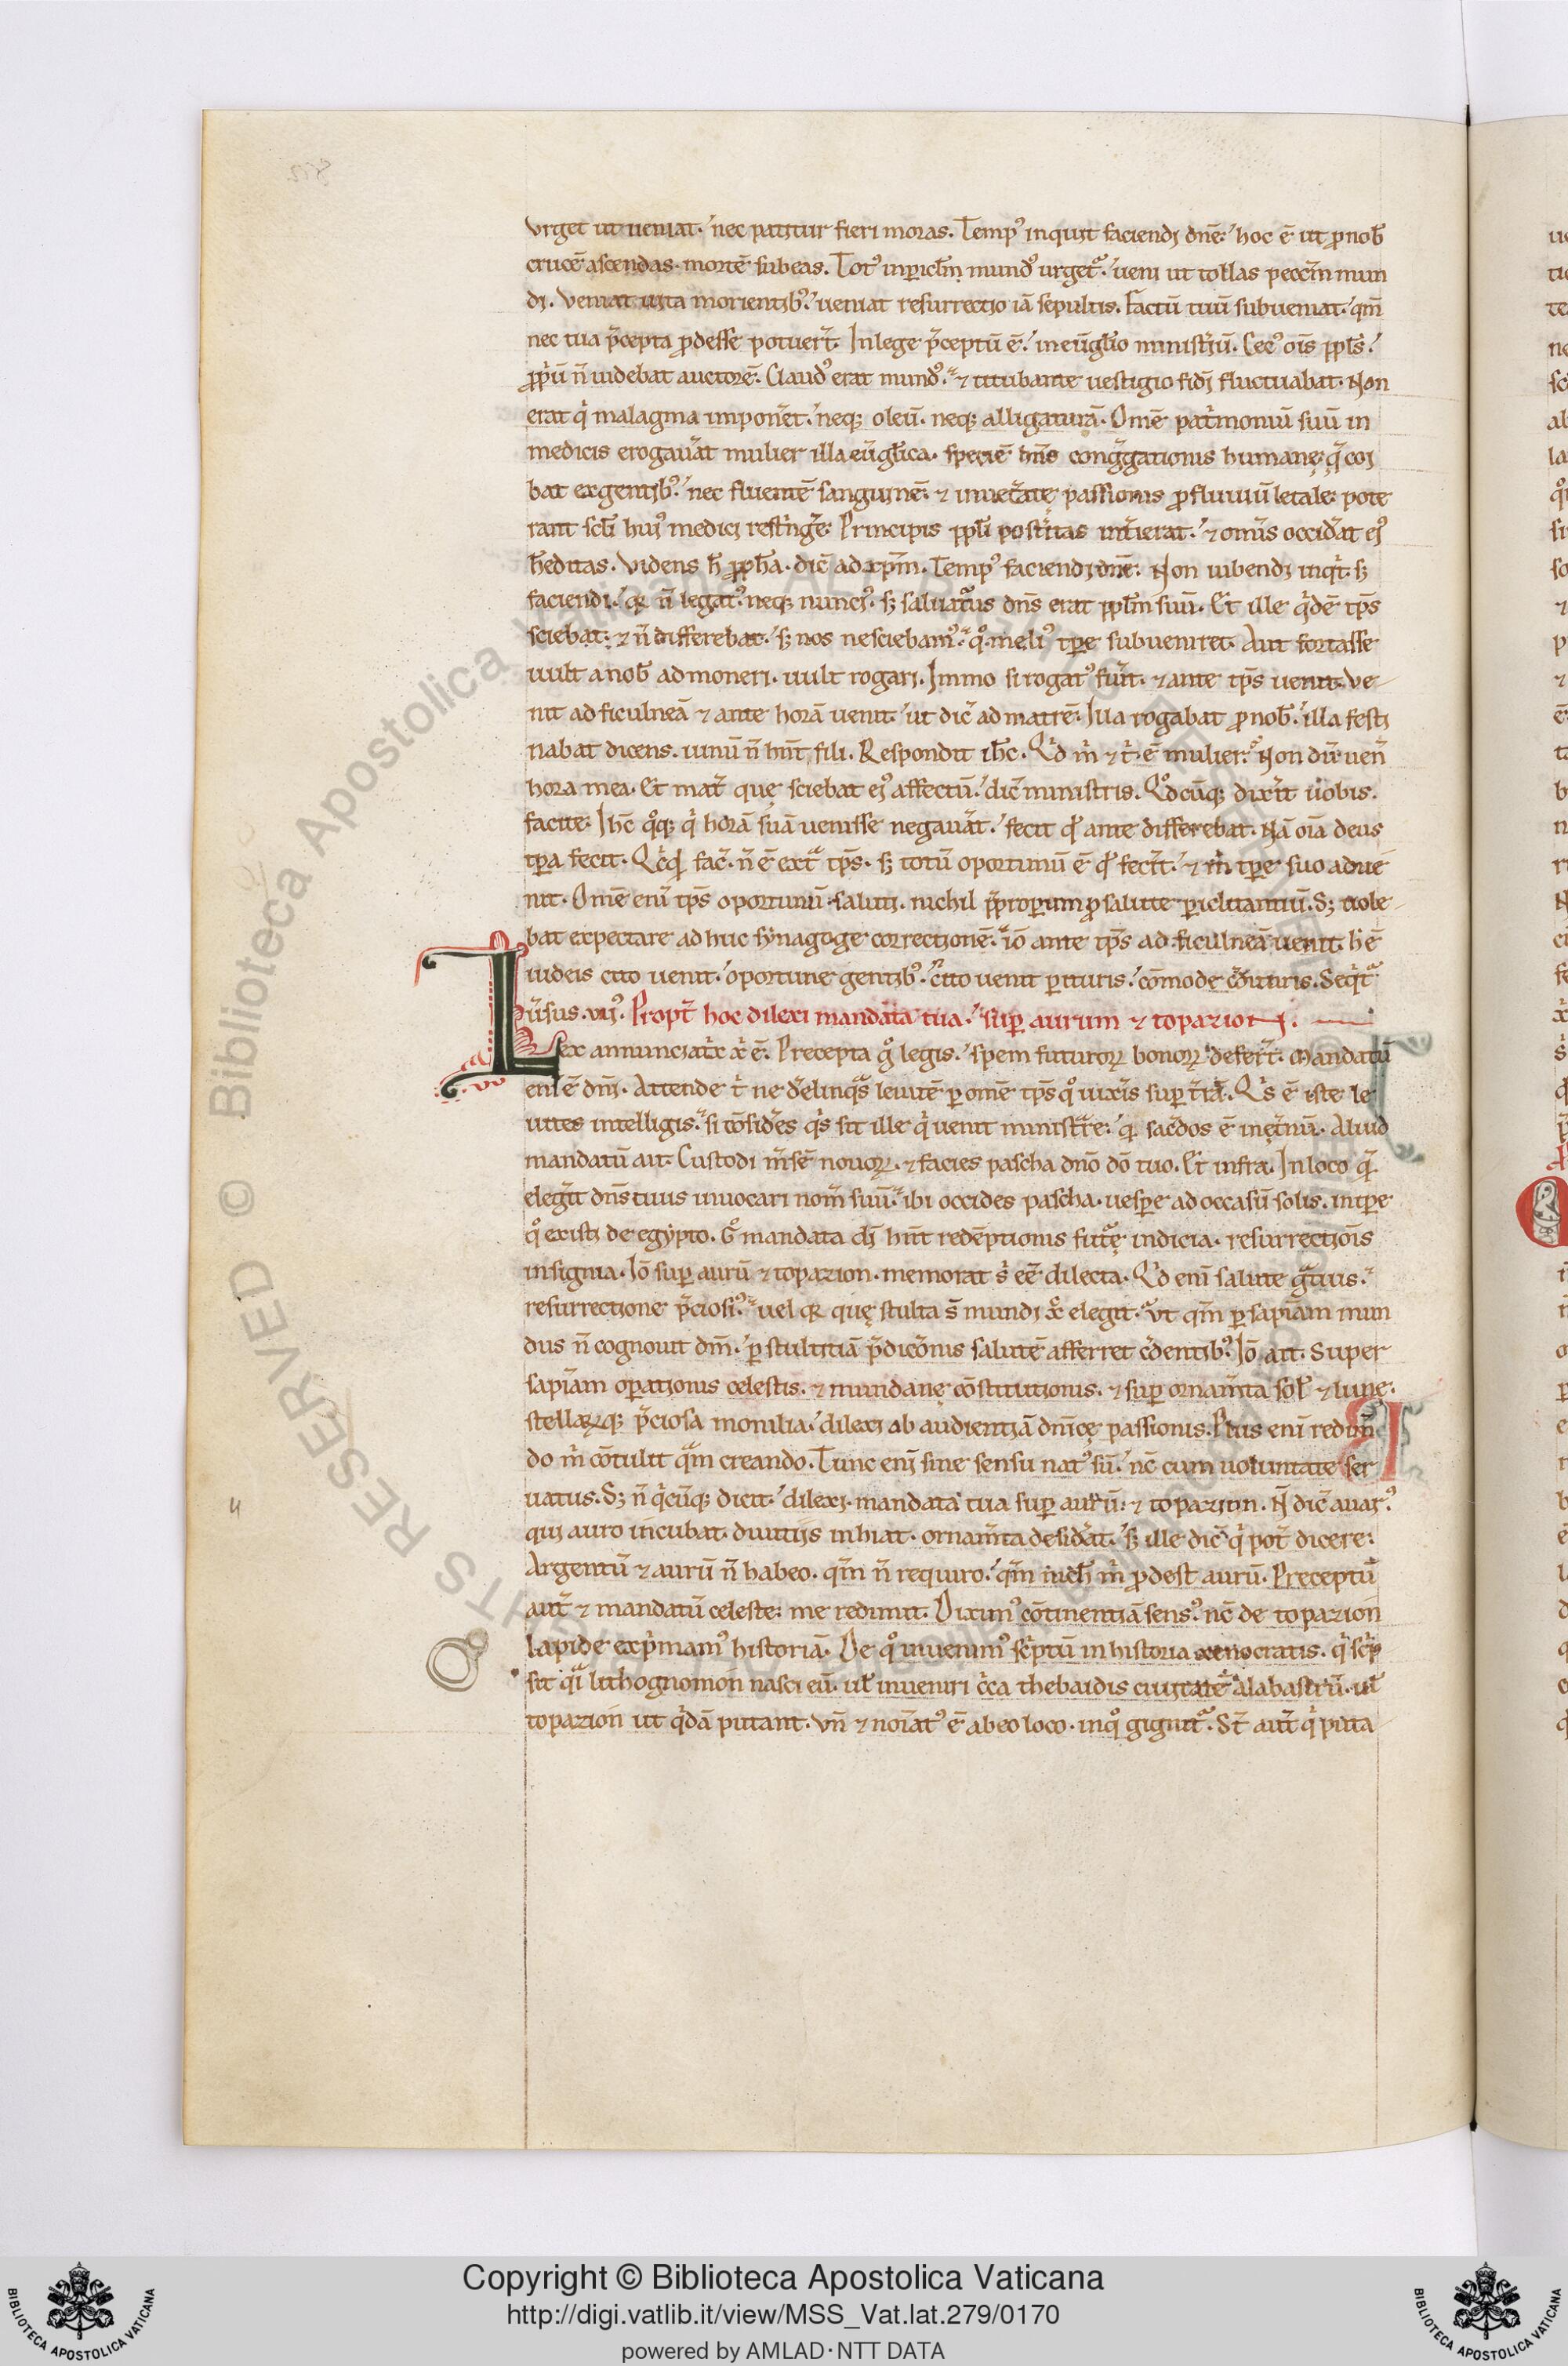 vrget ut ueniat. nec patitur fieri moras. Temp⁹ inquit faciendi dn̄e. hoc ē ut ꝓ nob̄
crucē ascendas. mortē subeas. Tot⁹ in ꝑicl̄m mund⁹ urget᷑. ueni ut tollas peccm̄ mun
di. Veniat uita morientib⁹. ueniat resurrectio iā sepultis. Factū tuū subueniat. qm̄
nec tua p̄cepta ꝓdesse potuer̄t. In lege p̄ceptū ē. in eūgl̄io minist̄iū. Cec⁹ oīs ppl̄s.
ꝓp̄ū n̄ uidebat auctorē. Claud⁹ erat mund⁹. ⁊ titubante uestigio fidei fluctuabat. Non
erat qͥ malagma impon̄et. neqꝫ oleū. neqꝫ alligaturā. Omē pat̄moniū suū in
medicis erogau̅at mulier illa eūgl̄ica. speciē
bat ex gentib⁹. nec fluentē sanguinē. ⁊ inuet̄atę passionis ꝓfluuiū letale. pote
rant scl̄i hui⁹ medici rest̄nḡe. Principis ppl̄i post̄itas int̄ierat. ⁊ omīs occid̄at ei⁹
h̄editas. Videns h̄ ꝓph̄a. dic̄ ad xp̄m. Temp⁹ faciendi dn̄e. Non iubendi inqͥt. sꝫ
faciendi. qꝛ n̄ legat⁹. neqꝫ nunci⁹. sꝫ saluat᷑us dn̄s erat ppl̄m suū. Et ille qͥdē tp̄s
sciebat. ⁊ n̄ differebat. sꝫ nos nesciebam⁹. qͦ meli⁹ tꝑe subueniret. Aut fortasse
uult a nob̄ admoneri. uult rogari. Immo si rogat⁹ fu̅it. ⁊ ante tp̄s uenit. Ve
nit ad ficulneā ⁊ ante horā uenit. ut dic̄ ad matrē. Illa rogabat ꝓ nob̄. illa festi
nabat dicens. uinū n̄ hn̄t fili. Respondit ih̄c. Qͥd m̄ ⁊ t̄ ē mulier. Non dū uen̄
hora mea. Et mat̄ quę sciebat ei⁹ affectū. dic̄ ministris. Qͦdcūqꝫ dix̄it uobis.
facite. Ih̄c qͦqꝫ qͥ horā suā uenisse negau̅at. fecit qd̄ ante differebat. Nā oīa deus
tꝑa fecit. Qͥcqͥd fac̄. n̄ ē ext̄ tp̄s. sꝫ totū oportunū ē qd̄ fec̄it. ⁊ m̄ tꝑe suo adue
nit. Omē eni tp̄s oportunū saluti. nichil p̄properum ꝓ salute ꝑiclitantiū. Sꝫ uole
bat expectare adhuc synagoge correctionē. iō ante tp̄s ad ficulneā uenit. h̄ ē
iudeis cito uenit. oportune gentib⁹. cito uenit ꝑituris. cōmode
Ūsus. vii⁹. Propt̄ hoc dilexi mandata tua. suꝑ aurum ⁊ topazion.
Lex annunciat̄x x̄ ē. Precepta g̊ legis. spem futuroꝝ bonoꝝ defer̄t. Mandatū
eni ē dn̄i. Attende t̄ ne d̄elinqͣs leuitē ꝑ omē tp̄s qͦ uix̄is suꝑ t̄rā. Qͥs ē iste le
uites intelligis. si cōsid̄es qͥs sit ille qͥ uenit minist̄re. qꝛ sac̄dos ē in et̄nū. Aliud
mandatū ait. Custodi m̄sē nouoꝝ. ⁊ facies pascha dn̄o dō tuo. Et infra. In loco q̄
eleḡit dn̄s tuus inuocari nom̄ suū. ibi occides pascha. uesꝑe ad occasū solis. in tꝑe
qͦ existi de egypto. G̊ mandata dī hn̄t redēptionis fut᷑ę indicia. resurrectiōis
insignia. Iō suꝑ aurū ⁊ topazion. memorat s̄ eē dilecta. Qͥd eni salute gͣtius.
resurrectione p̄ciosi⁹. uel qꝛ quę stulta s̄ mundi x̊ elegit. Vt qm̄ ꝑ sapiām mun
dus n̄ cognouit dm̄. ꝑ stultitiā p̄dic̄onis salutē afferret c̄dentib⁹. Iō ait. Super
sapiām oꝑationis celestis. ⁊ mundanę cōstitutionis. ⁊ suꝑ ornam̄ta sol̄ ⁊ lunę.
stellaꝝqꝫ p̄ciosa monilia. dilexi ob audientiā dn̄icę passionis. Plus enī redim̄
do m̄ cōtulit qͣm creando. Tunc eni sine sensu nat⁹ sū. nc̄ cum uoluntate ser
uatus. Sꝫ n̄ qͥcūqꝫ dicit. dilexi mandata tua suꝑ aurū. ⁊ topazion. N̄ dic̄ auar⁹.
qui auro incubat. diuitijs inhiat. ornam̄ta desid̄at. sꝫ ille dic̄ qͥ pot̄ dicere.
Argentū ⁊ aurū n̄ habeo. qm̄ n̄ requiro. qm̄ nich̄ m̄ ꝓdest aurū. Preceptū
aut̄ ⁊ mandatū celeste. me redimit. Dixim⁹ cōtinentiā sens⁹. nc̄ de topazion
lapide exp̄mam⁹ historiā. De qͦ inuenim⁹ sc̄ptū in historia xenocratis. qͥ sc̄p
sit qͣi lithognomon nasci eū. ul̄ inueniri c̄ca thebaidis ciuitatē alabastrū. ul̄
topazion ut qͥdā putant. Vn̄ ⁊ noīat⁹ ē ab eo loco. in qͦ gignit᷑. St̄ aut̄ qͥ puta
Copyright © Biblioteca Apostolica Vaticana
http://digi.vatlib.it/view/MSS_Vat.lat.279/0170
powered by AMLAD·NTT DATA
BIBLIOTECA APOSTOLICA VATICANA
BIBLIOTECA APOSTOLICA VATICANA